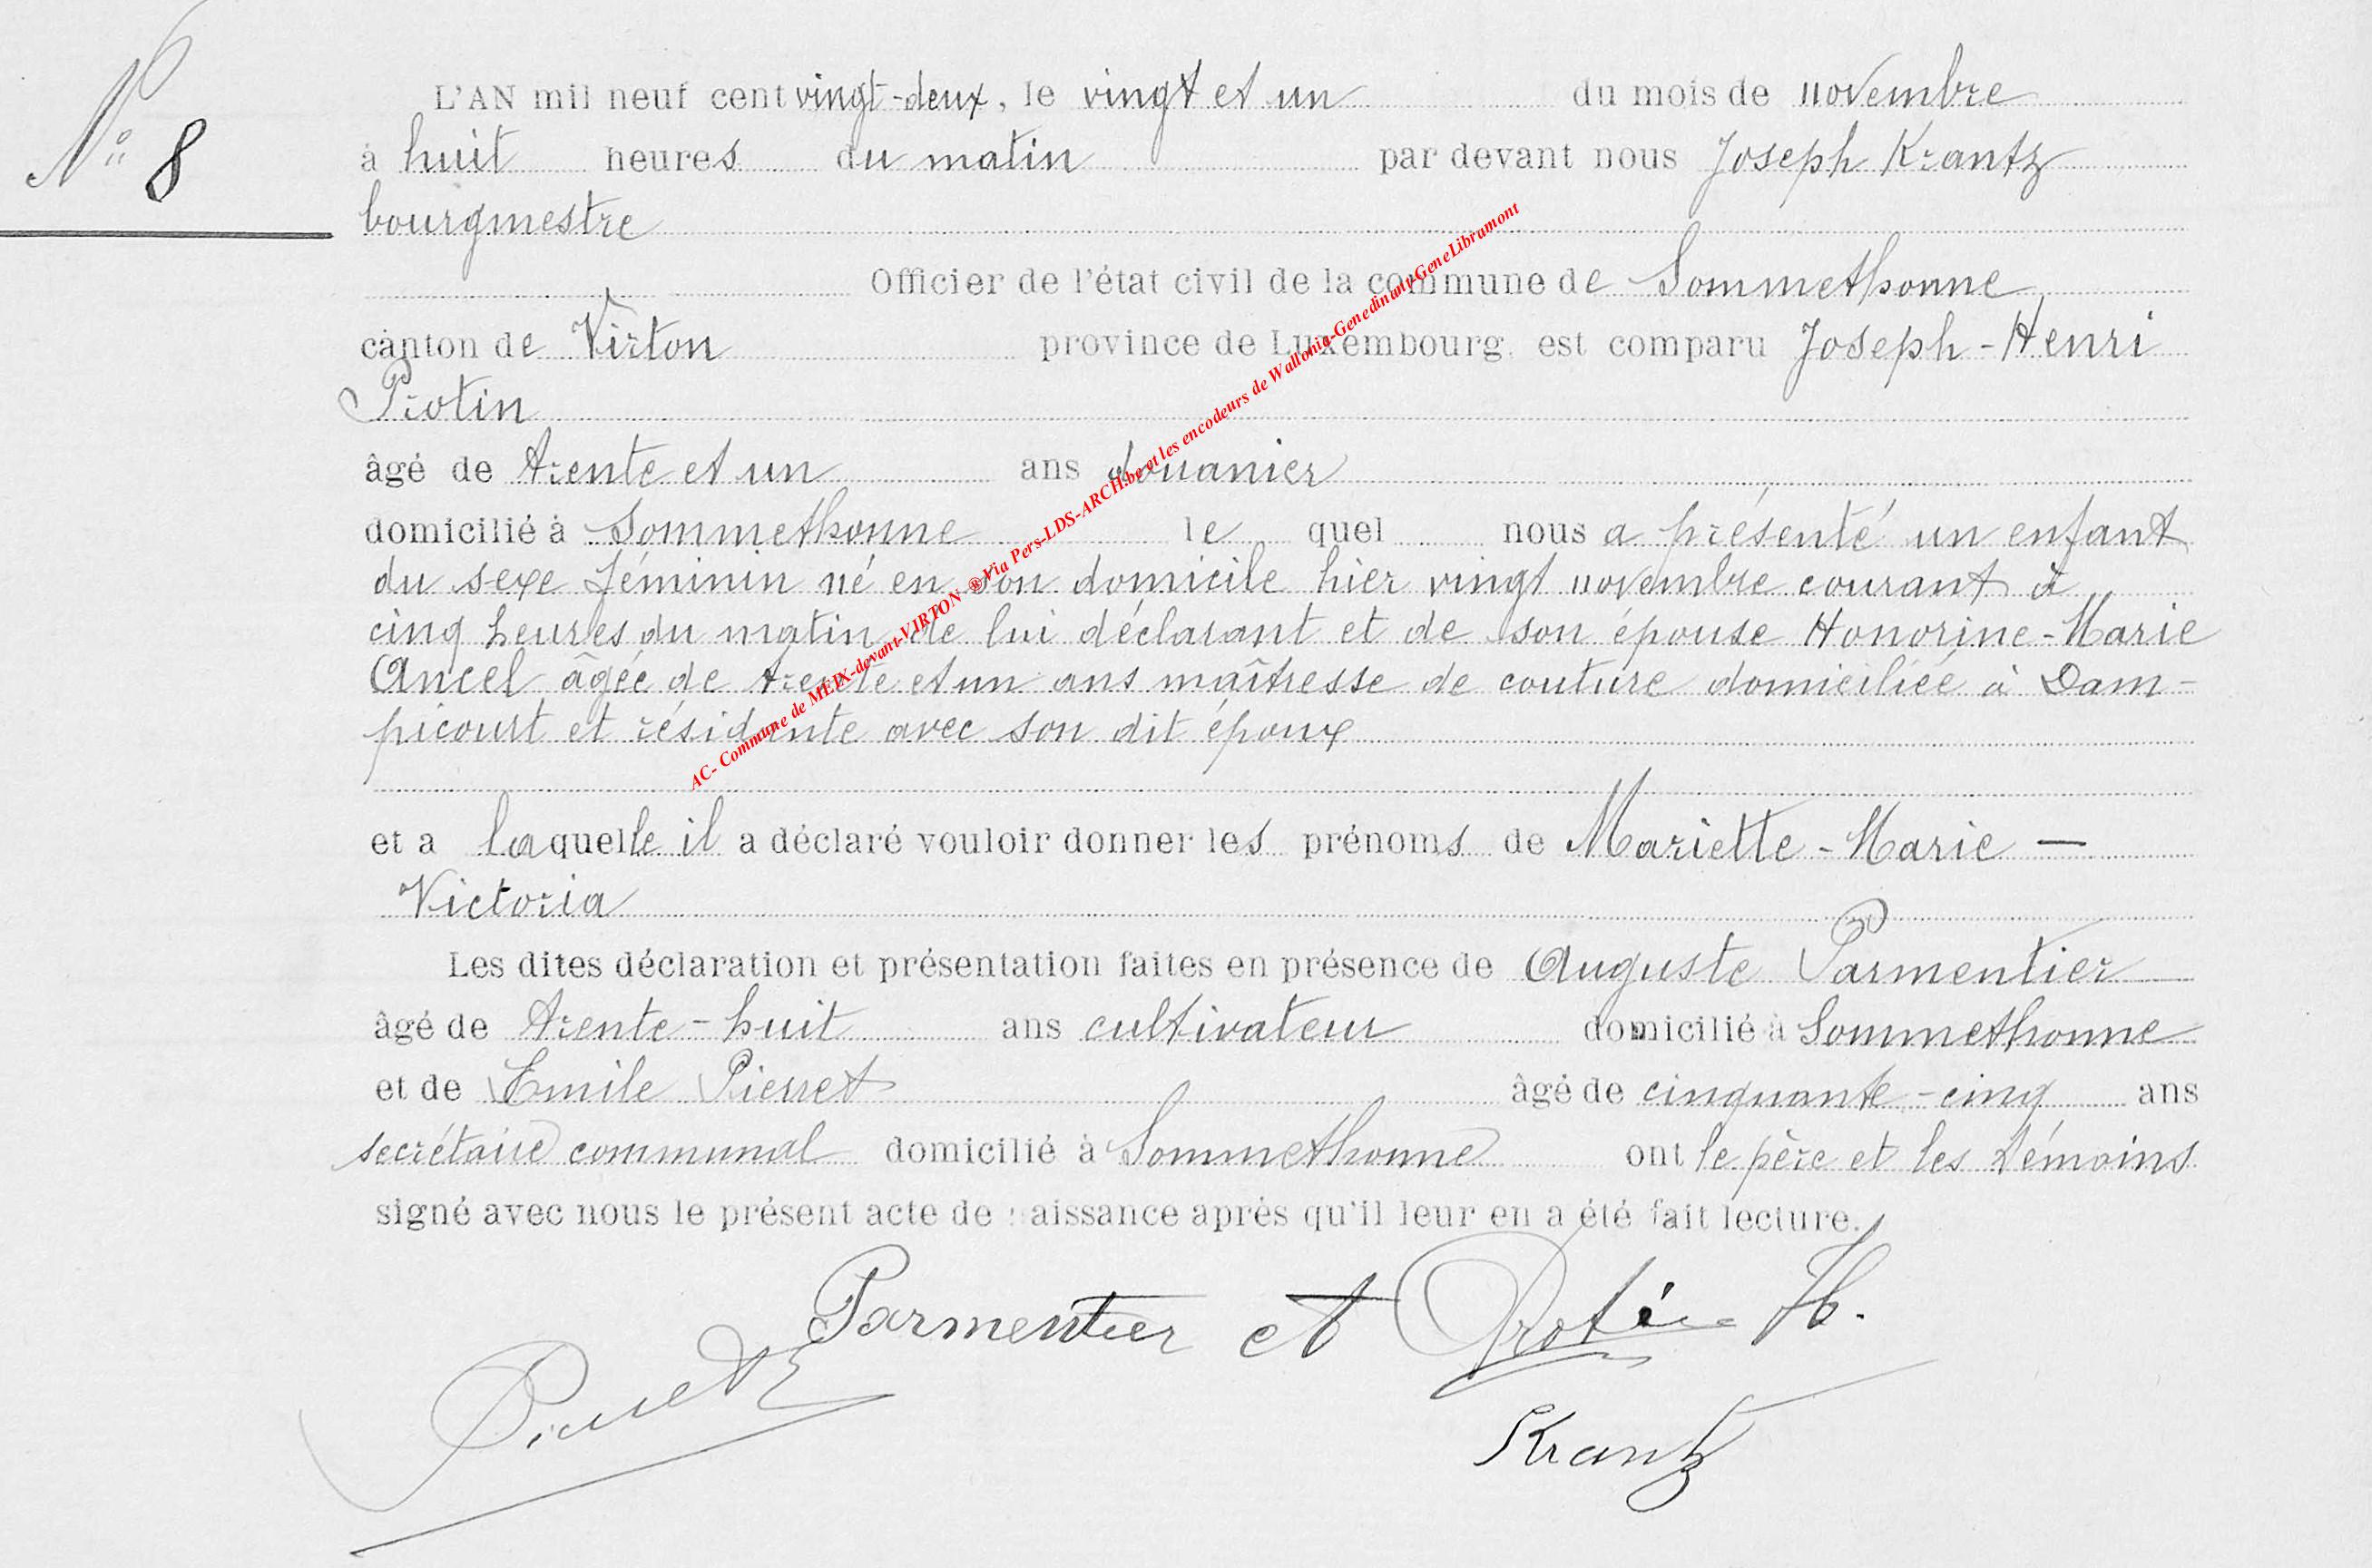 N° 8
L'AN mil neuf cent vingt-deux, le vingt et un du mois de novembre
à huit heures du matin par devant nous Joseph Krantz
bourgmestre
Officier de l'état civil de la commune de Sommethonne
canton de Virton province de Luxembourg est comparu Joseph-Henri
Protin
âgé de trente et un ans douanier
domicilié à Sommethonne le quel nous a présenté un enfant
du sexe féminin né en son domicile hier vingt novembre courant à
cinq heures du matin de lui déclarant et de son épouse Honorine-Marie
Ancel âgée de trente et un ans maîtresse de couture domiciliée à Dam-
picourt et résidante avec son dit époux
et a laquelle il a déclaré vouloir donner les prénoms de Mariette-Marie —
Victoria
Les dites déclaration et présentation faites en présence de Auguste Parmentier
âgé de trente-huit ans cultivateur domicilié à Sommethonne
et de Emile Pierret âgé de cinquante-cinq ans
secrétaire communal domicilié à Sommethonne ont le père et les témoins
signé avec nous le présent acte de naissance après qu'il leur en a été fait lecture.
Parmentier et Protin H.
Pierret
Krantz
AC- Commune de MEIX-devant-VIRTON ®Via Pers-LDS-ARCH.be et les encodeurs de Wallonia-Genedinant-GeneLibramont